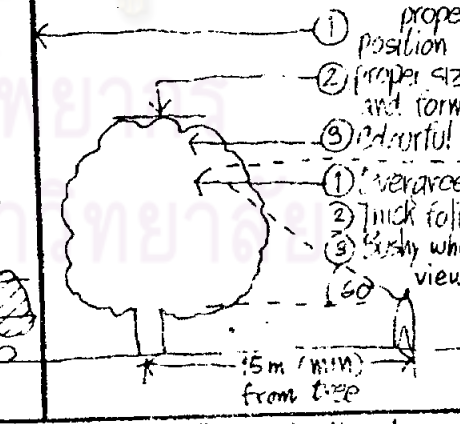 ① prope
position
② proper siz
and form
③ colourful
① Evergree
② Thick foli
③ Bushy whe
view
60
15m (min)
from tree